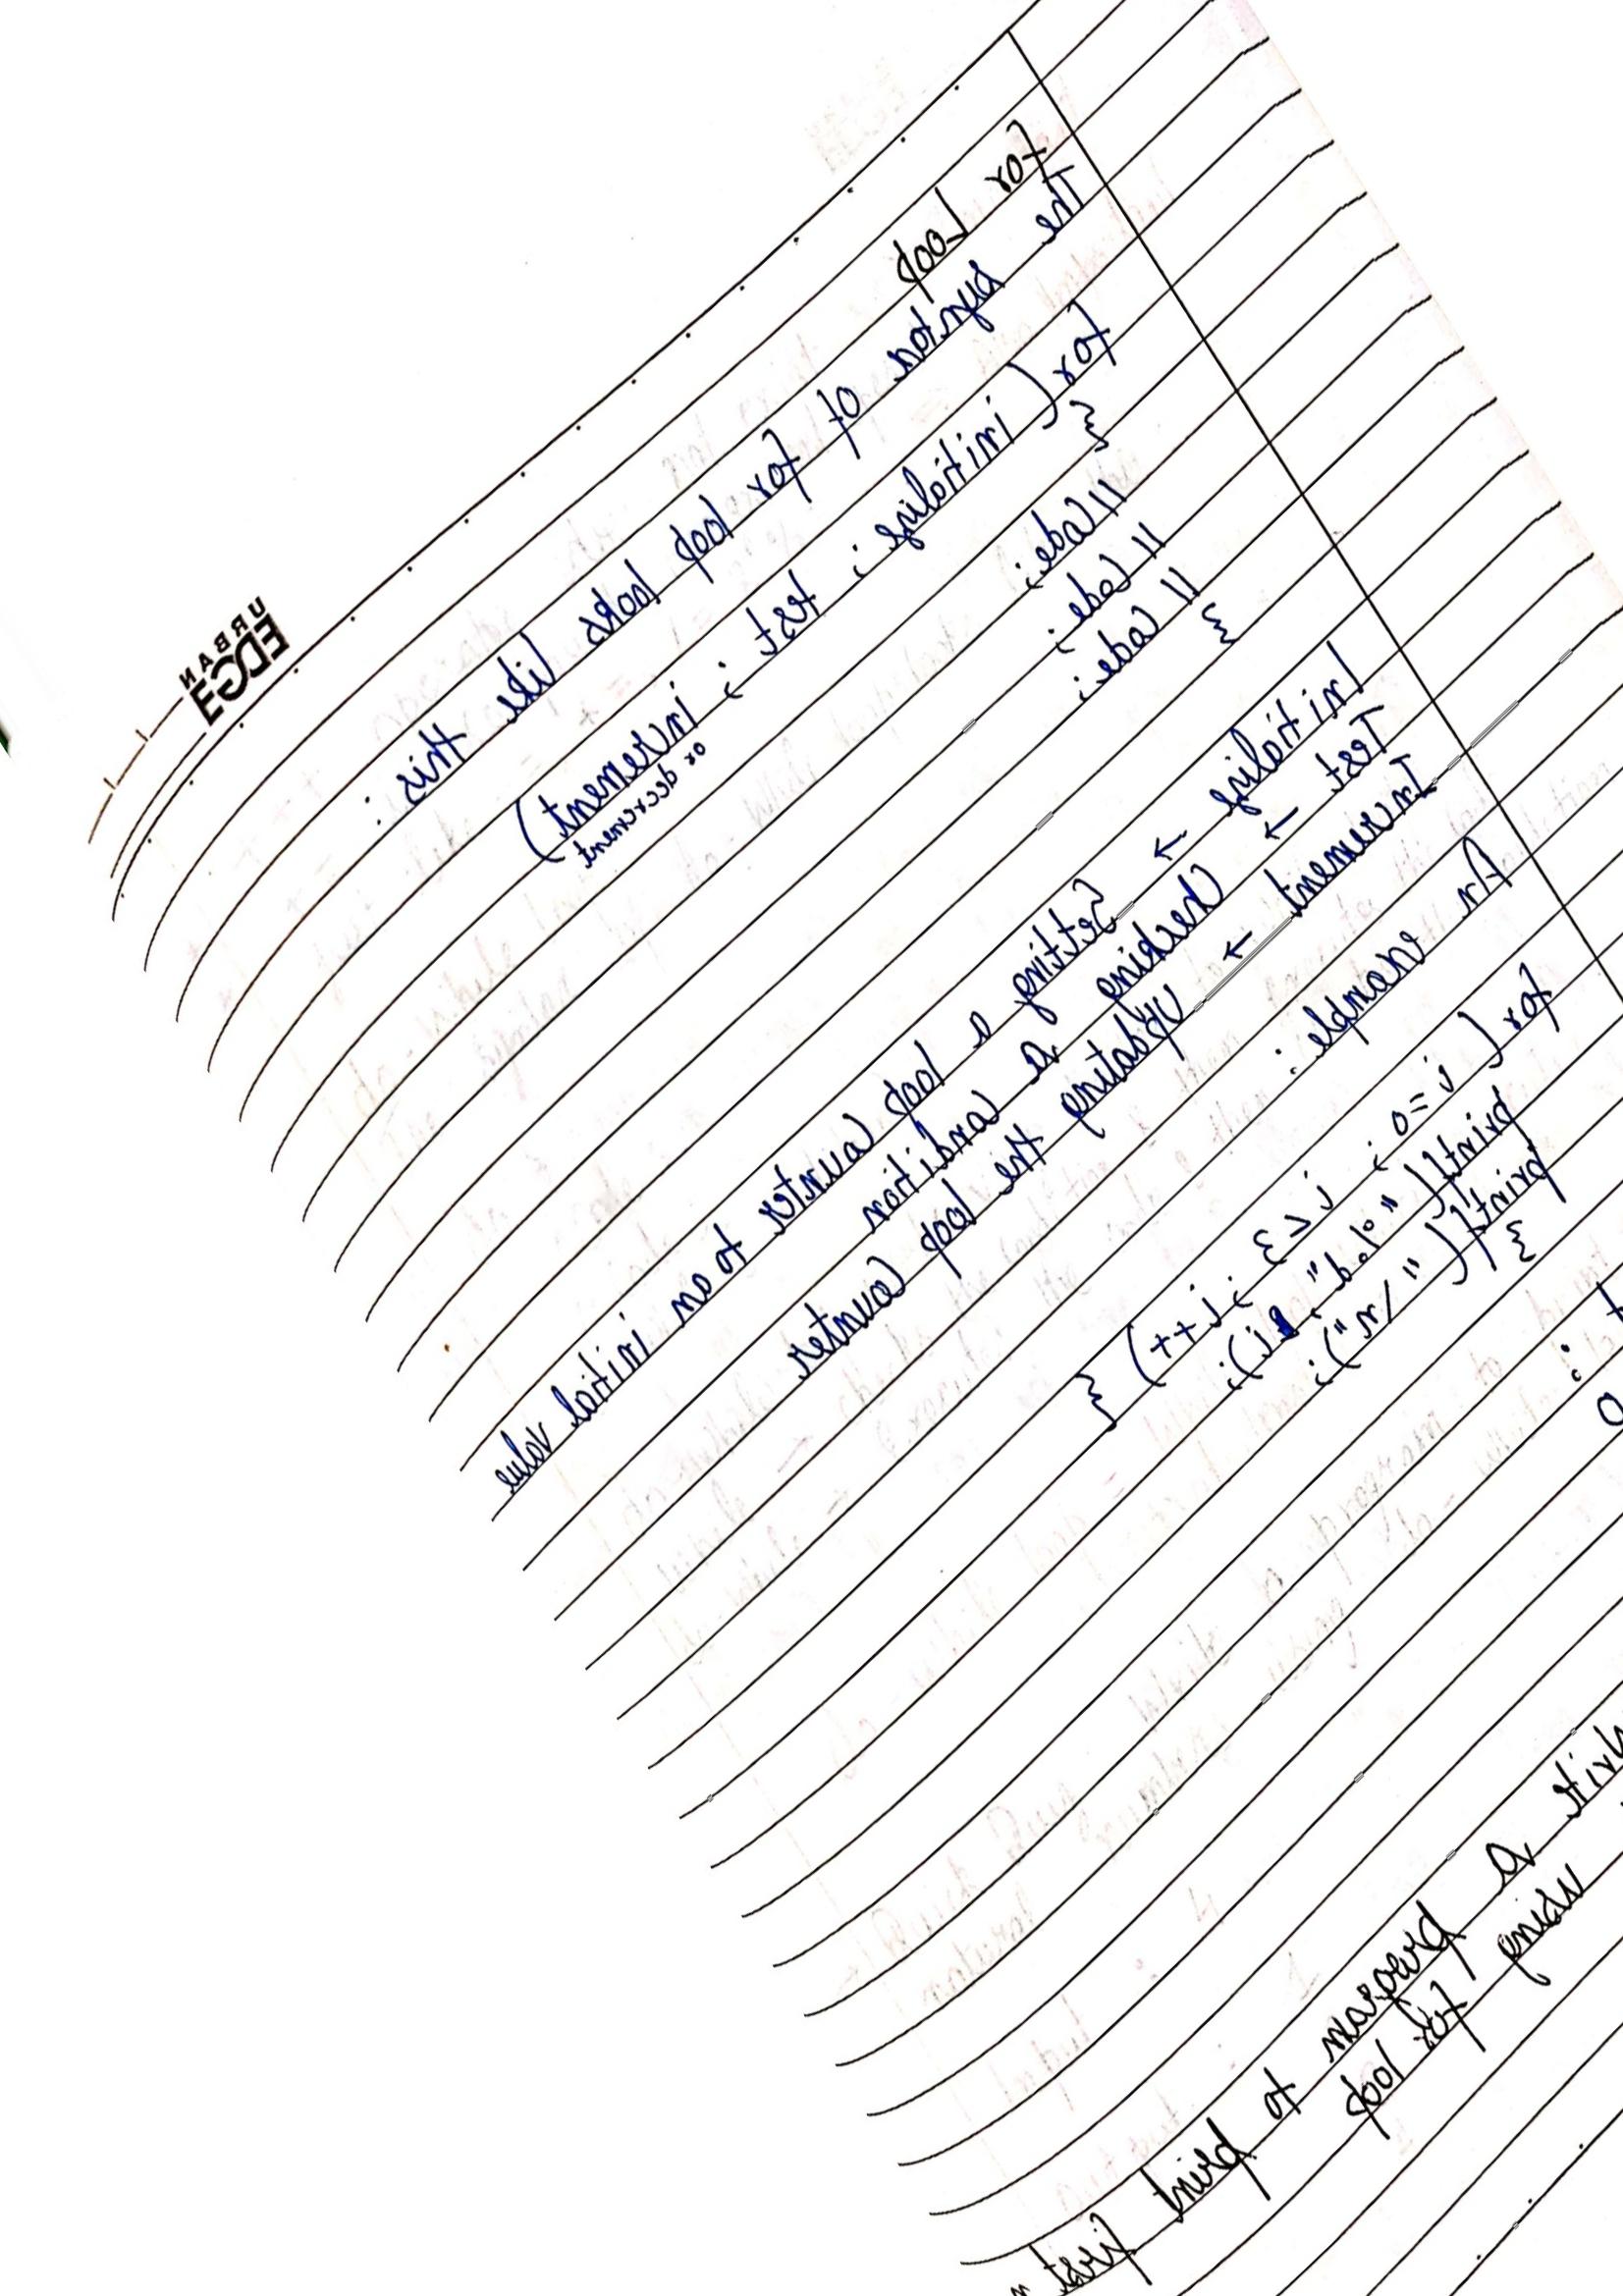 URBAN
EDGE
for Loop
The syntax of for loop looks like this :
for ( initialize ; test ; increment )
or decrement
{
// Code ;
// Code ;
// Code ;
}
Initialize → Setting a loop counter to an initial value
Test → Checking a condition
Increment → updating the loop counter
An example :
for ( i = 0 ; i < 3 ; i++ ) {
printf( "%d", i);
printf( "\n" );
}
0
Write a program to print first
using for loop